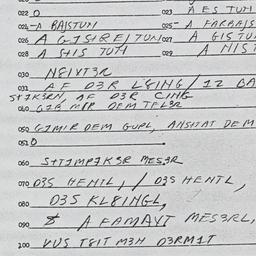 022 O 023 A E S TUM
024 -A BAISTUM 025- A FARBAJS
026 A GISIREITUM 027 A GIS TU
028 A SHIS TUM 029 A NIST
030 N8IVT3R
031 AF D3R L8ING / 12 BA
AF D3R CING
040 GIB MIR DEM TEL3R
050 GIMIR DEM GUPL, ANSTAT DEM
051 O
060 STIMPIKSR MES3R
070 D3S HENTL, / D3S HENTL,
080 D3S KL8INGL,
090 A FAMAVT MES3RL,
100 VUS T8IT M3H D3RMIT